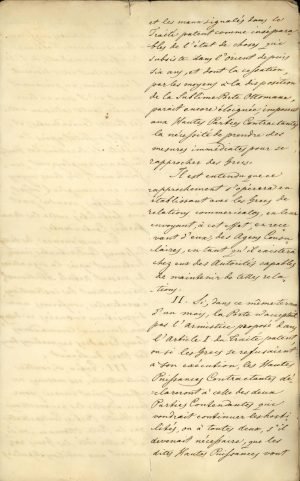 et les maux signalés dans le
Traité patent comme insépara-
bles de l'état de choses, que
subsiste dans l'Orient depuis
six ans, et dont la cessation,
par les moyens à la disposition
de la Sublime Porte Ottomane,
parait encore éloignée, imposent
aux Hautes Parties Contractantes
la nécessité de prendre des
mesures immédiates pour se
rapprocher des Grecs.
Il est entendu que ce
rapprochement s'opérera en
établissant avec les Grecs des
relations commerciales, en leur
envoyant à cet effet, en rece-
vant d'eux, des Agens Consu-
laires, en tant qu'il existera
chez eux des Autorités capables
de maintenir de telles rela-
tions.
II. Si, dans ce même terme
d'un mois, la Porte n'accepte
pas l'armistice proposé dans
l'Article I du Traité patent,
ou si les Grecs se refusaient
à son exécution, les Hautes
Puissances Contractantes dé-
clareront à celle des deux
Parties Contendantes qui
voudrait continuer les hosti-
lités, ou à toutes deux, s'il
devenait nécessaire, que les
dites Hautes Puissances vont